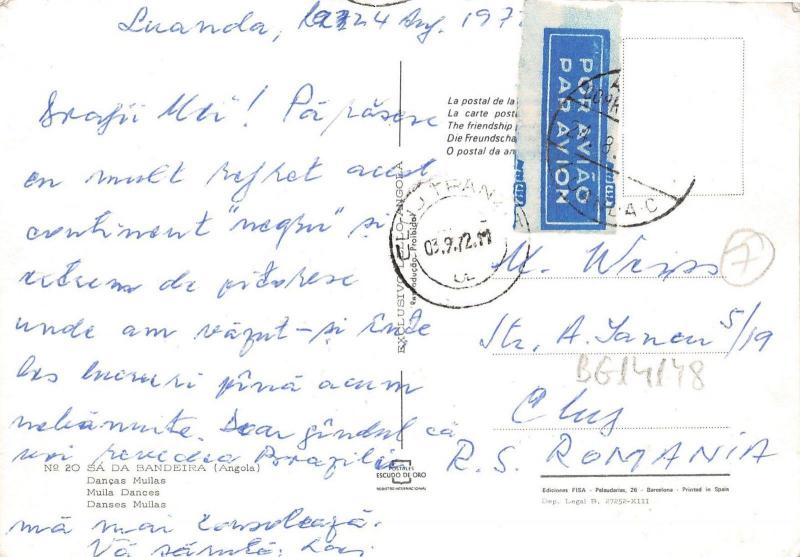 Luanda, 24 Aug. 197
Dragii Mei! Părăsesc
cu mult regret acest
continent "negru" și
extrem de pitoresc
unde am văzut-și înțe
les lucruri pînă acum
nebănuite. Doar gîndul că
voi revedea Brazilia
mă mai consolează.
Vă sărută,
Nº 20 SÁ DA BANDEIRA (Angola)
Danças Muilas
Muila Dances
Danses Muilas
La postal de la
La carte post
The friendship
Die Freundscha
O postal da an
EXCLUSIVO
LO-ANGOLA
Reprodução Proibida
POSTALES
ESCUDO DE ORO
REGISTRO INTERNACIONAL
POR AVIÃO
PAR AVION
29.8.
CLUJ TRANZ
03.9.72.
W. Weiss
Str. A. Iancu 5/19
BG14148
Cluj
R. S. ROMANIA
Ediciones FISA - Palaudarias, 26 - Barcelona - Printed in Spain
Dep. Legal B. 27252-XIII